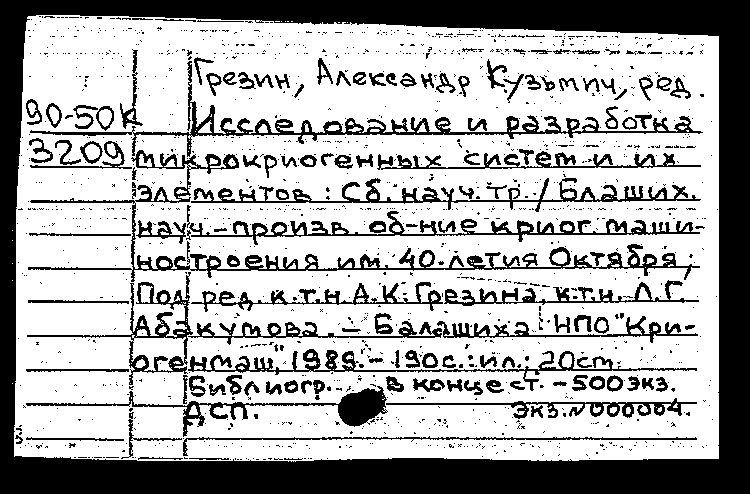 Грезин, Александр Кузьмич, ред.
90-50К Исследование и разработка
3209 микрокриогенных систем и их
элементов : Сб. науч. тр. / Блаших.
науч.-произв. об-ние криог. маши-
ностроения им. 40-летия Октября;
Под ред. к.т.н. А.К. Грезина, к.т.н. Л.Г.
Абакумова. – Балашиха : НПО "Кри-
огенмаш", 1989. – 190с. : ил.; 20см.
Библиогр. в конце ст. – 500 экз.
ДСП. Экз. N 000004.